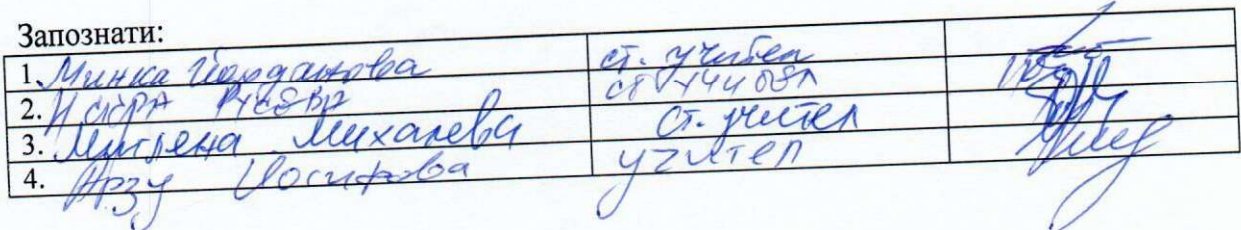 Запознати:
1. Минка Йорданова ст. учител
2. ст. учител
3. Милена Михалева ст. учител
4. Арзу Йосифова учител